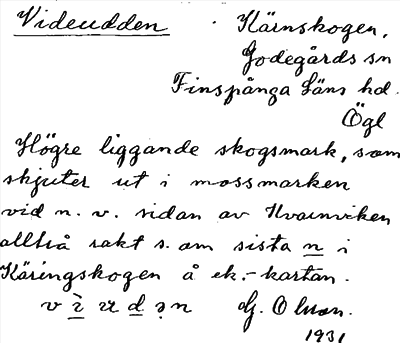 Videudden
Kärnskogen,
Godegårds sn
Finspånga Läns hd.
Ögl
Högre liggande skogsmark, som
skjuter ut i mossmarken
vid n. v. sidan av Kvarnviken
alltså rakt s. om sista n i
Käringskogen å ek.-kartan.
G. Olson.
1931